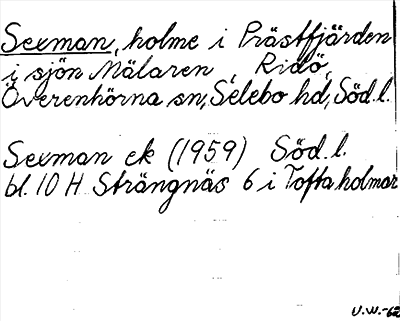 Sexman, holme i Prästfjärden
i sjön Mälaren, Ridö,
Överenhörna sn, Selebo hd, Söd. l.
Sexman ek (1959) Söd. l.
bl. 10 H Strängnäs 6 i Tofta holmar
U.W.-62